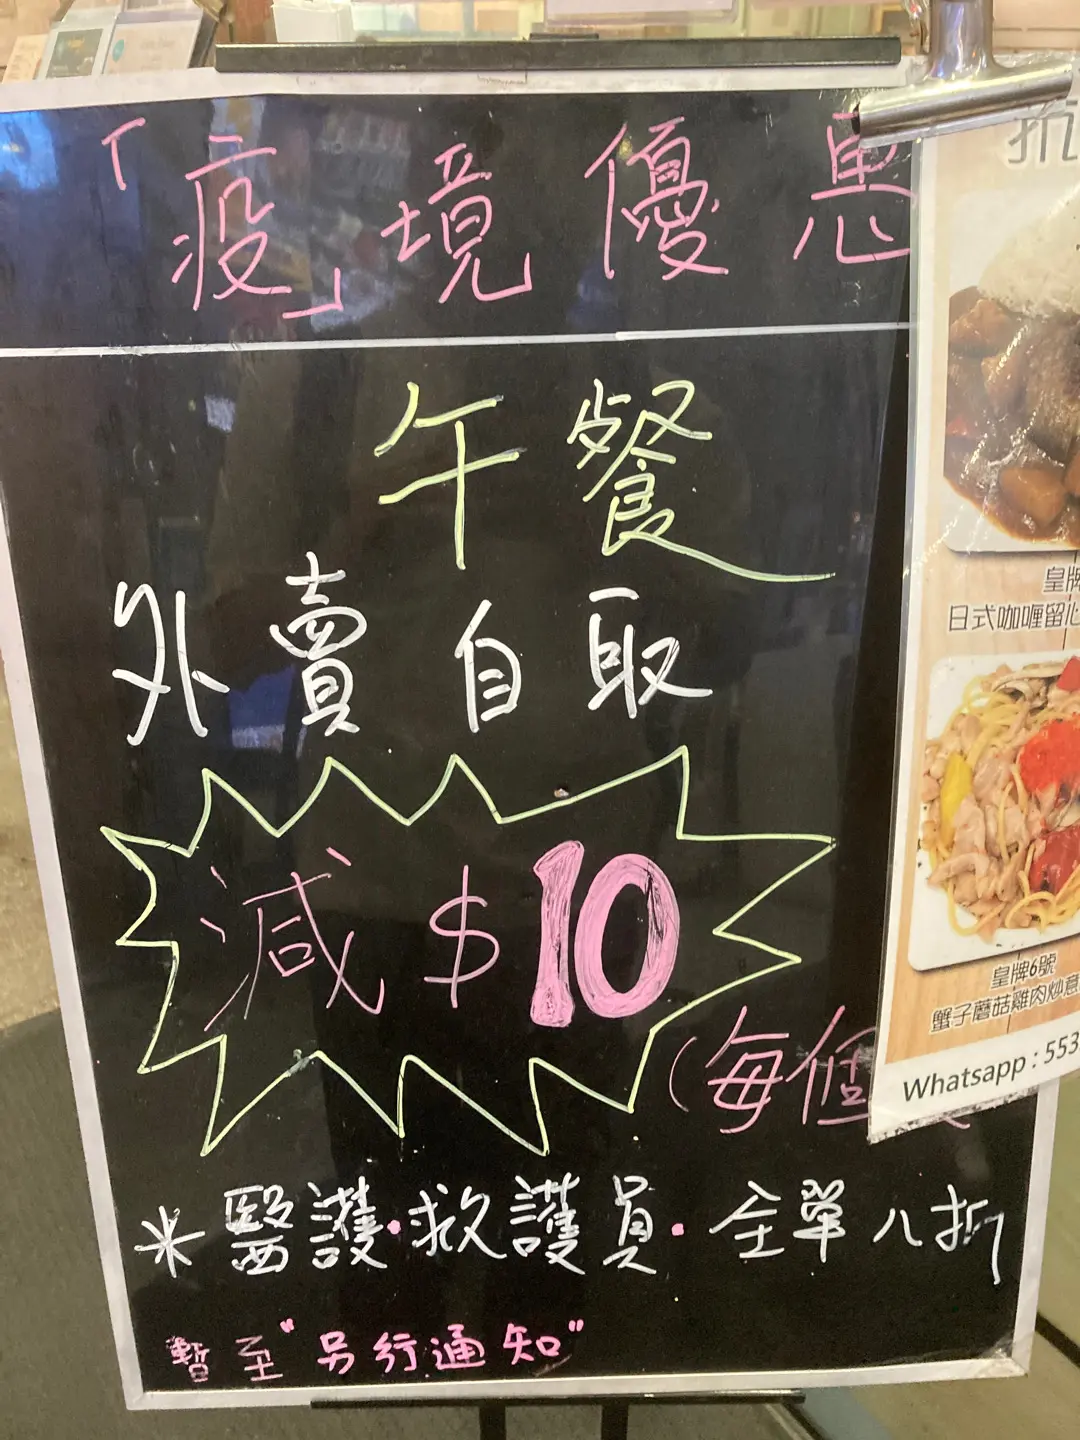 「疫」境優惠
午餐
外賣自取
減 $10
(每個
※ 醫護·救護員·全單八折
暫至"另行通知"
抗
皇牌
日式咖喱留心
皇牌6號
蟹子蘑菇雞肉炒意
Whatsapp : 553